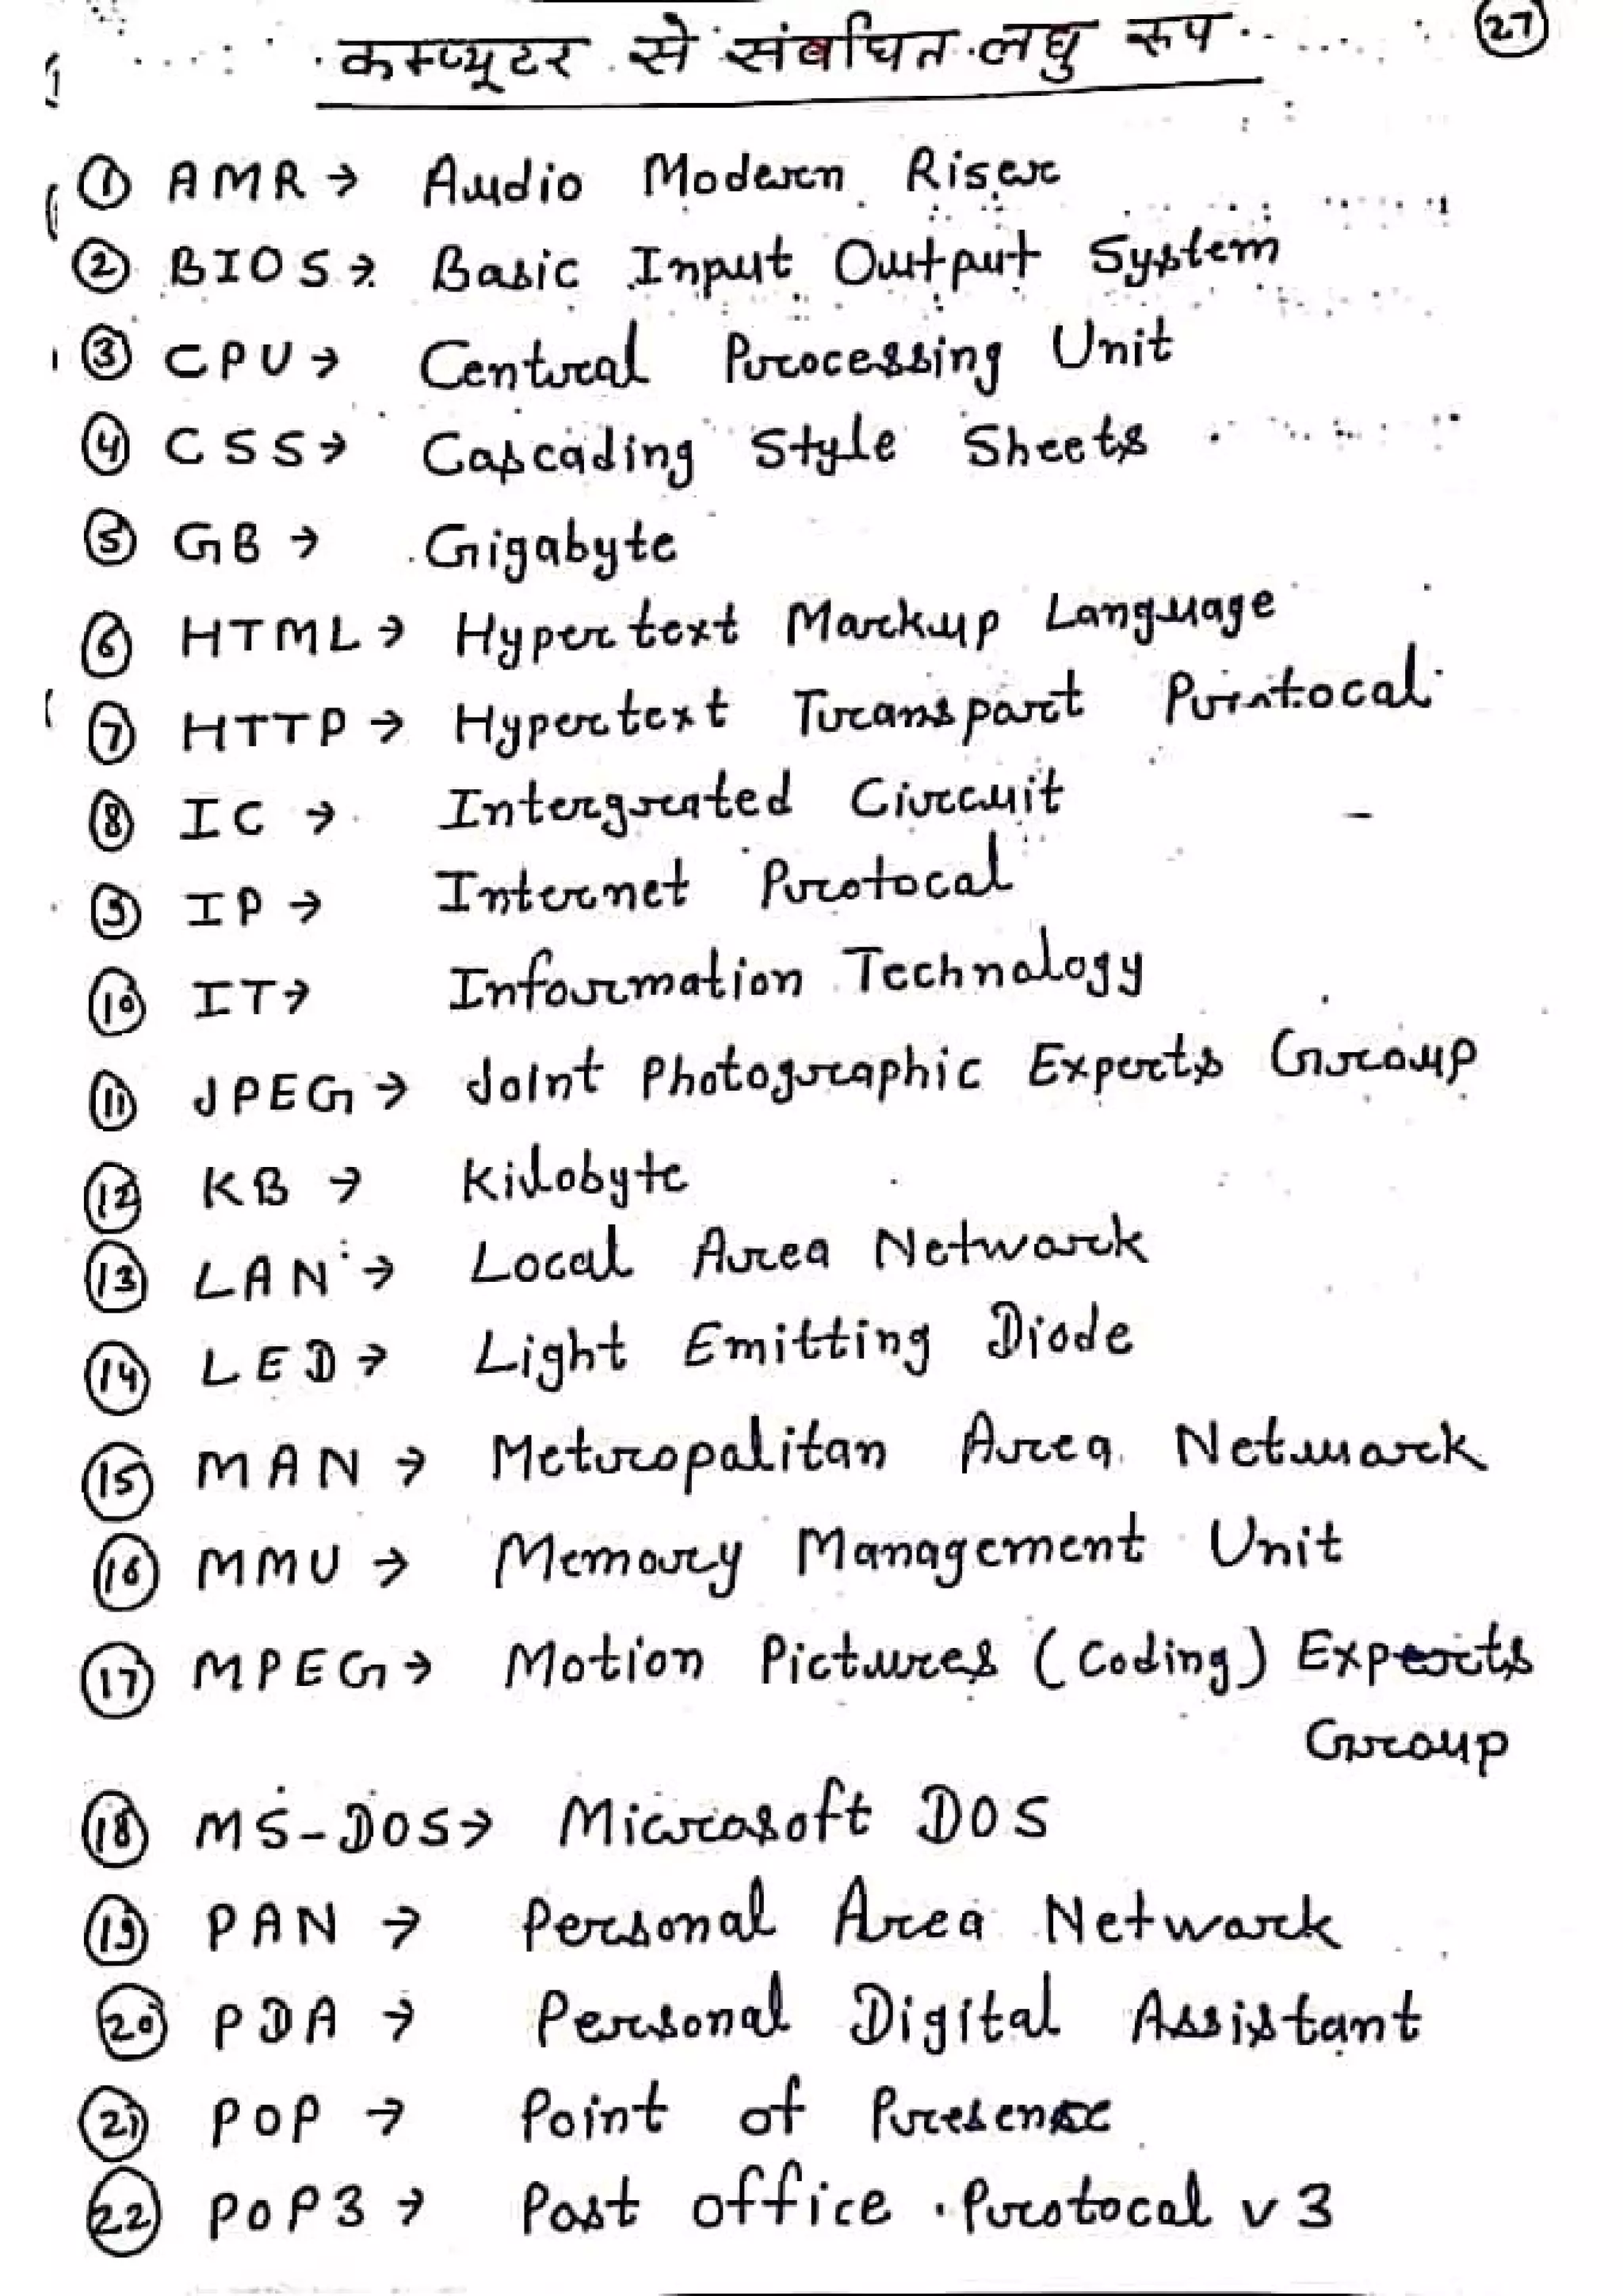 कम्प्यूटर से संबंधित लघु रुप
27
1 AMR → Audio Modern Riser
2 BIOS → Basic Input Output System
3 CPU → Central Processing Unit
4 CSS → Cascading Style Sheets
5 GB → Gigabyte
6 HTML → Hypertext Markup Language
7 HTTP → Hypertext Transport Protocal
8 IC → Intergrated Circuit
9 IP → Internet Protocal
10 IT → Information Technology
11 JPEG → Joint Photographic Experts Group
12 KB → Kilobyte
13 LAN → Local Area Network
14 LED → Light Emitting Diode
15 MAN → Metropalitan Area Network
16 MMU → Memory Management Unit
17 MPEG → Motion Pictures (Coding) Experts
Group
18 MS-DOS → Microsoft DOS
19 PAN → Personal Area Network
20 PDA → Personal Digital Assistant
21 POP → Point of Presence
22 POP3 → Post office Protocal v 3